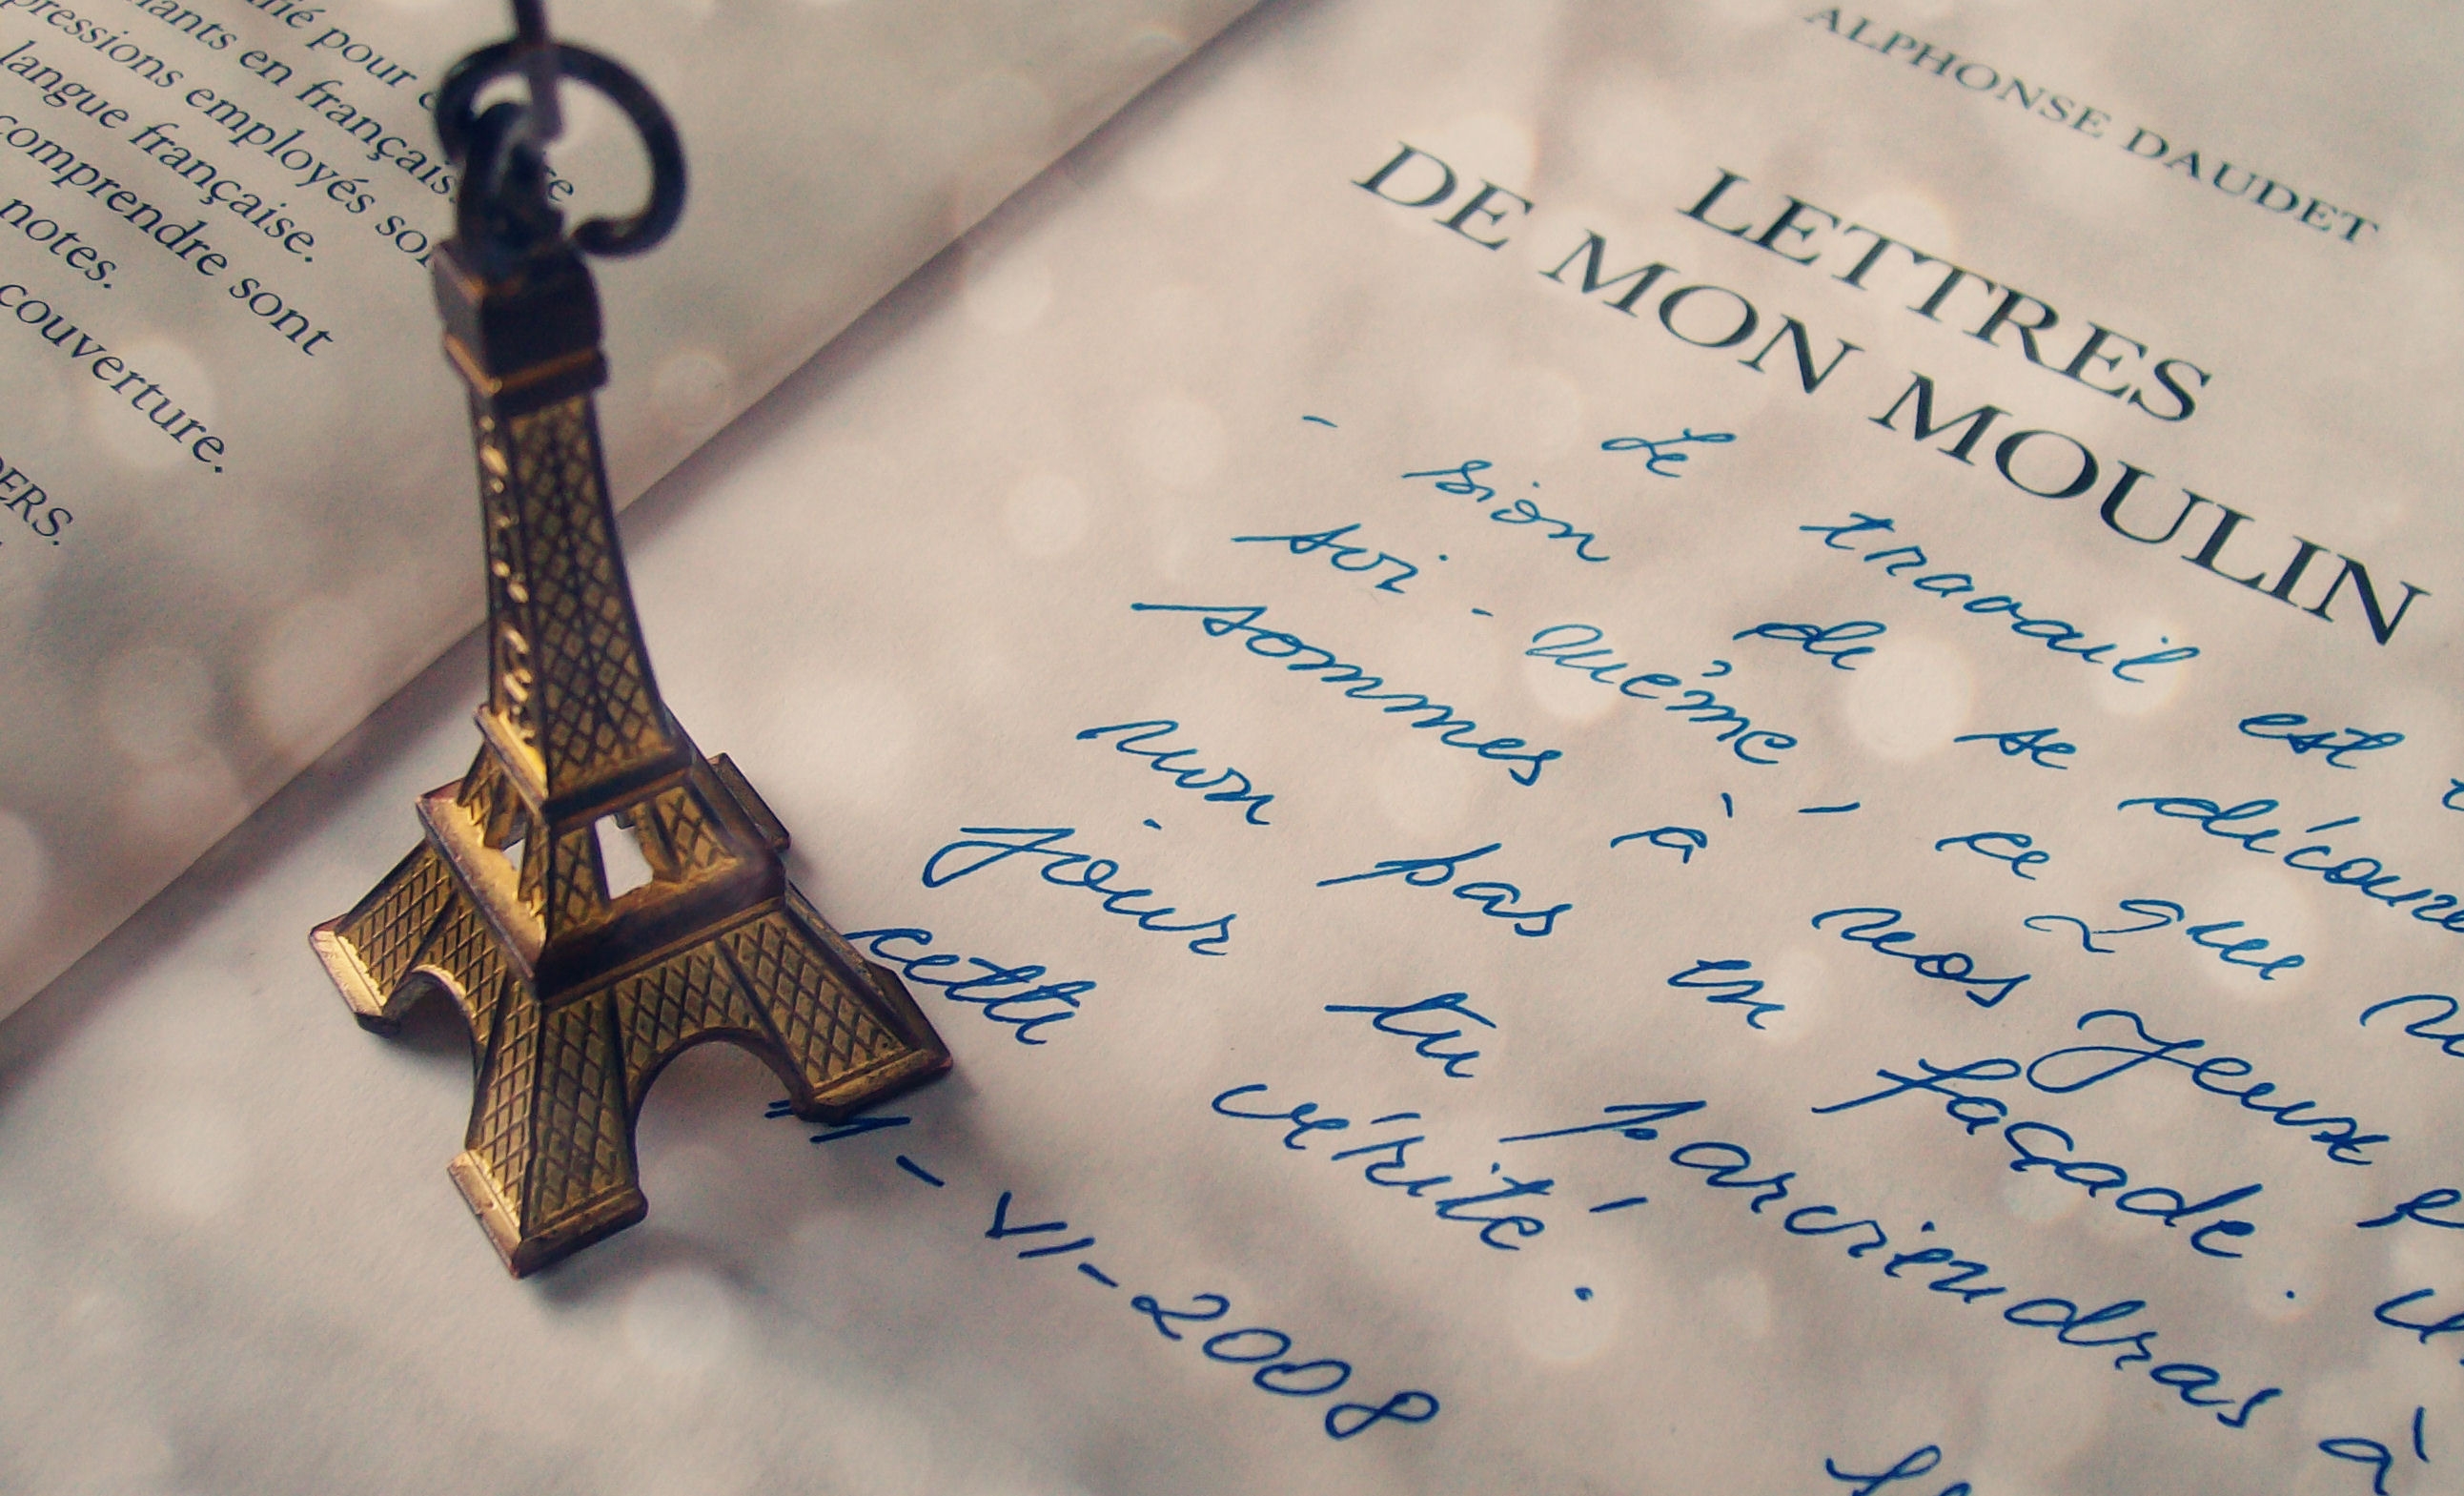 pour
en français.
employés
langue française.
comprendre sont
notes.
couverture.
ALPHONSE DAUDET
LETTRES
DE MON MOULIN
- Le travail est
sion de se découv
soi-même, ce que
sommes à nos yeux
non pas en façade.
jour tu parviendras à
cette vérité.
VI-2008